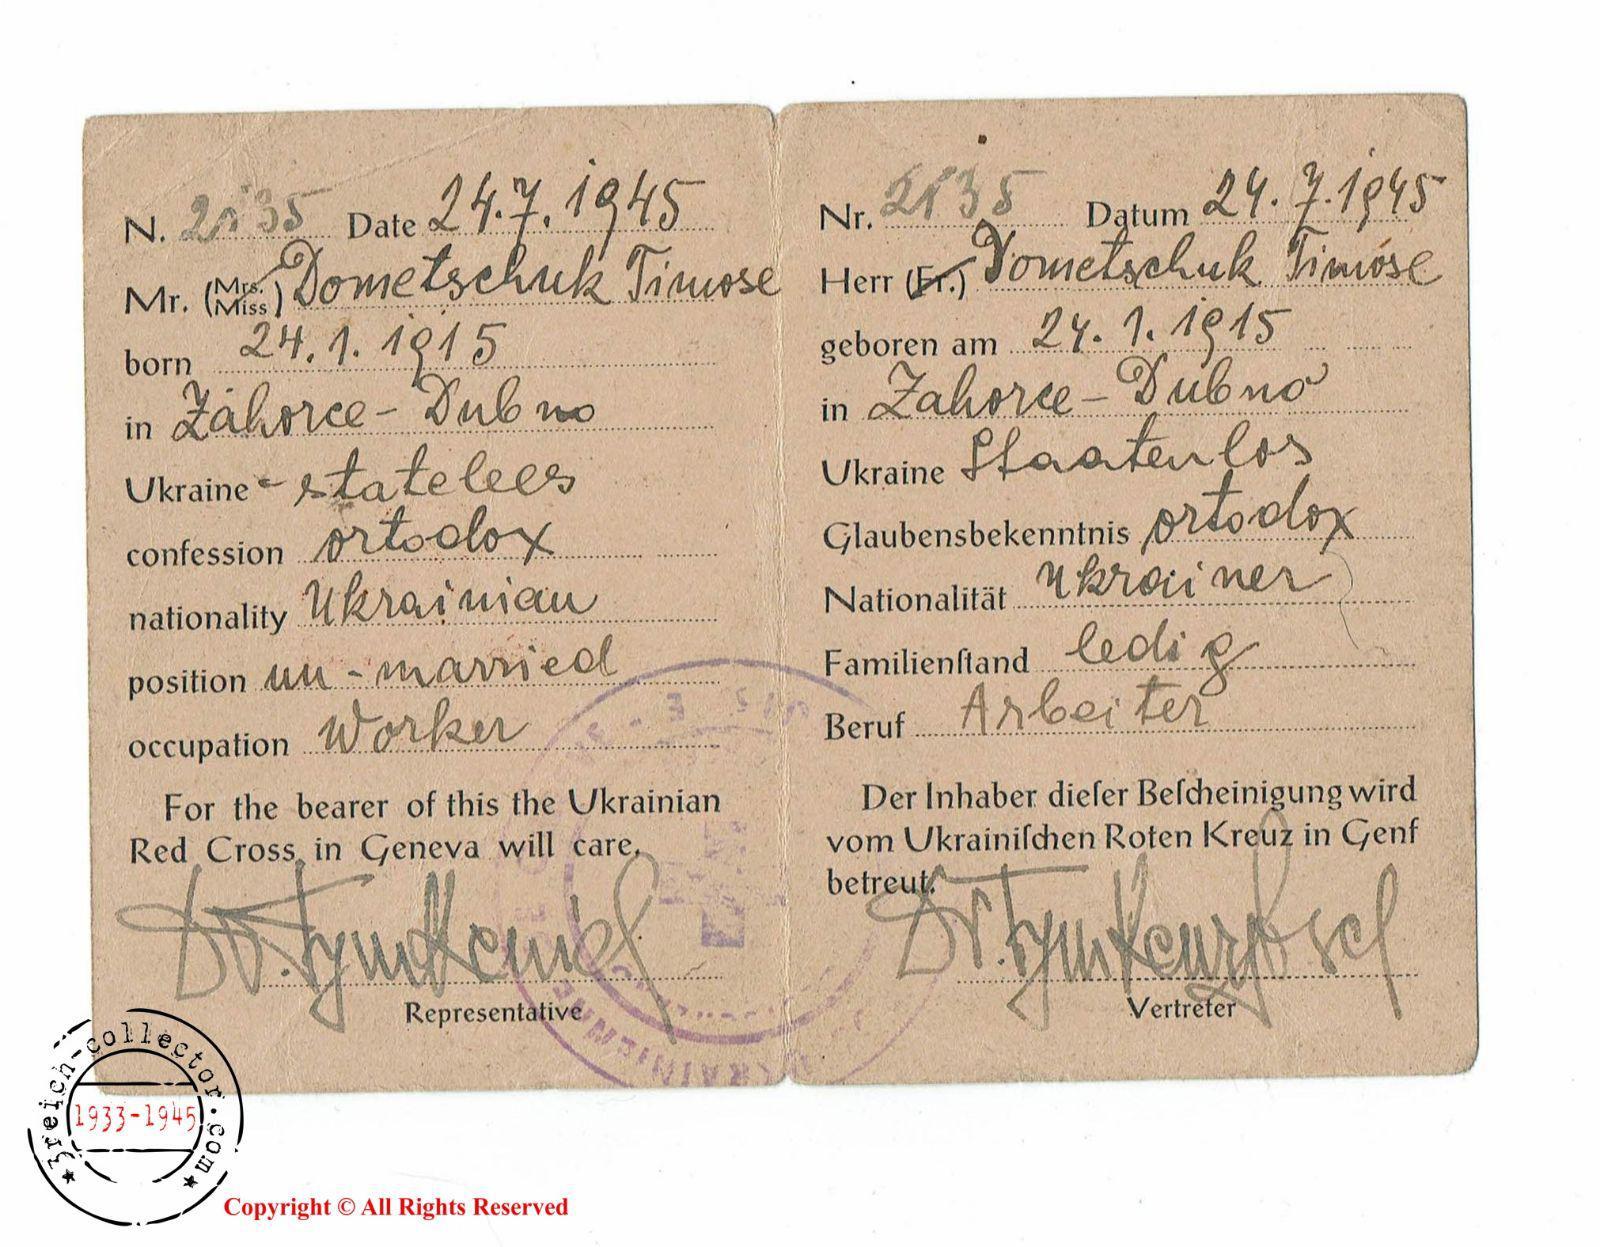 N. 2135 Date 24.7.1945
Mr. (Mrs. Miss) Dometschuk Timose
born 24.1.1915
in Zahorce - Dubno
Ukraine - statelees
confession ortodox
nationality Ukrainian
position un-married
occupation Worker
For the bearer of this the Ukrainian
Red Cross in Geneva will care.
Representative
Nr. 2135 Datum 24.7.1945
Herr (Fr.) Dometschuk Timose
geboren am 24.1.1915
in Zahorce - Dubno
Ukraine Staatenlos
Glaubensbekenntnis ortodox
Nationalität Ukrainer
Familienſtand ledig
Beruf Arbeiter
Der Inhaber dieſer Beſcheinigung wird
vom Ukrainiſchen Roten Kreuz in Genf
betreut.
Vertreter
3reich-collector.com
1933-1945
Copyright © All Rights Reserved